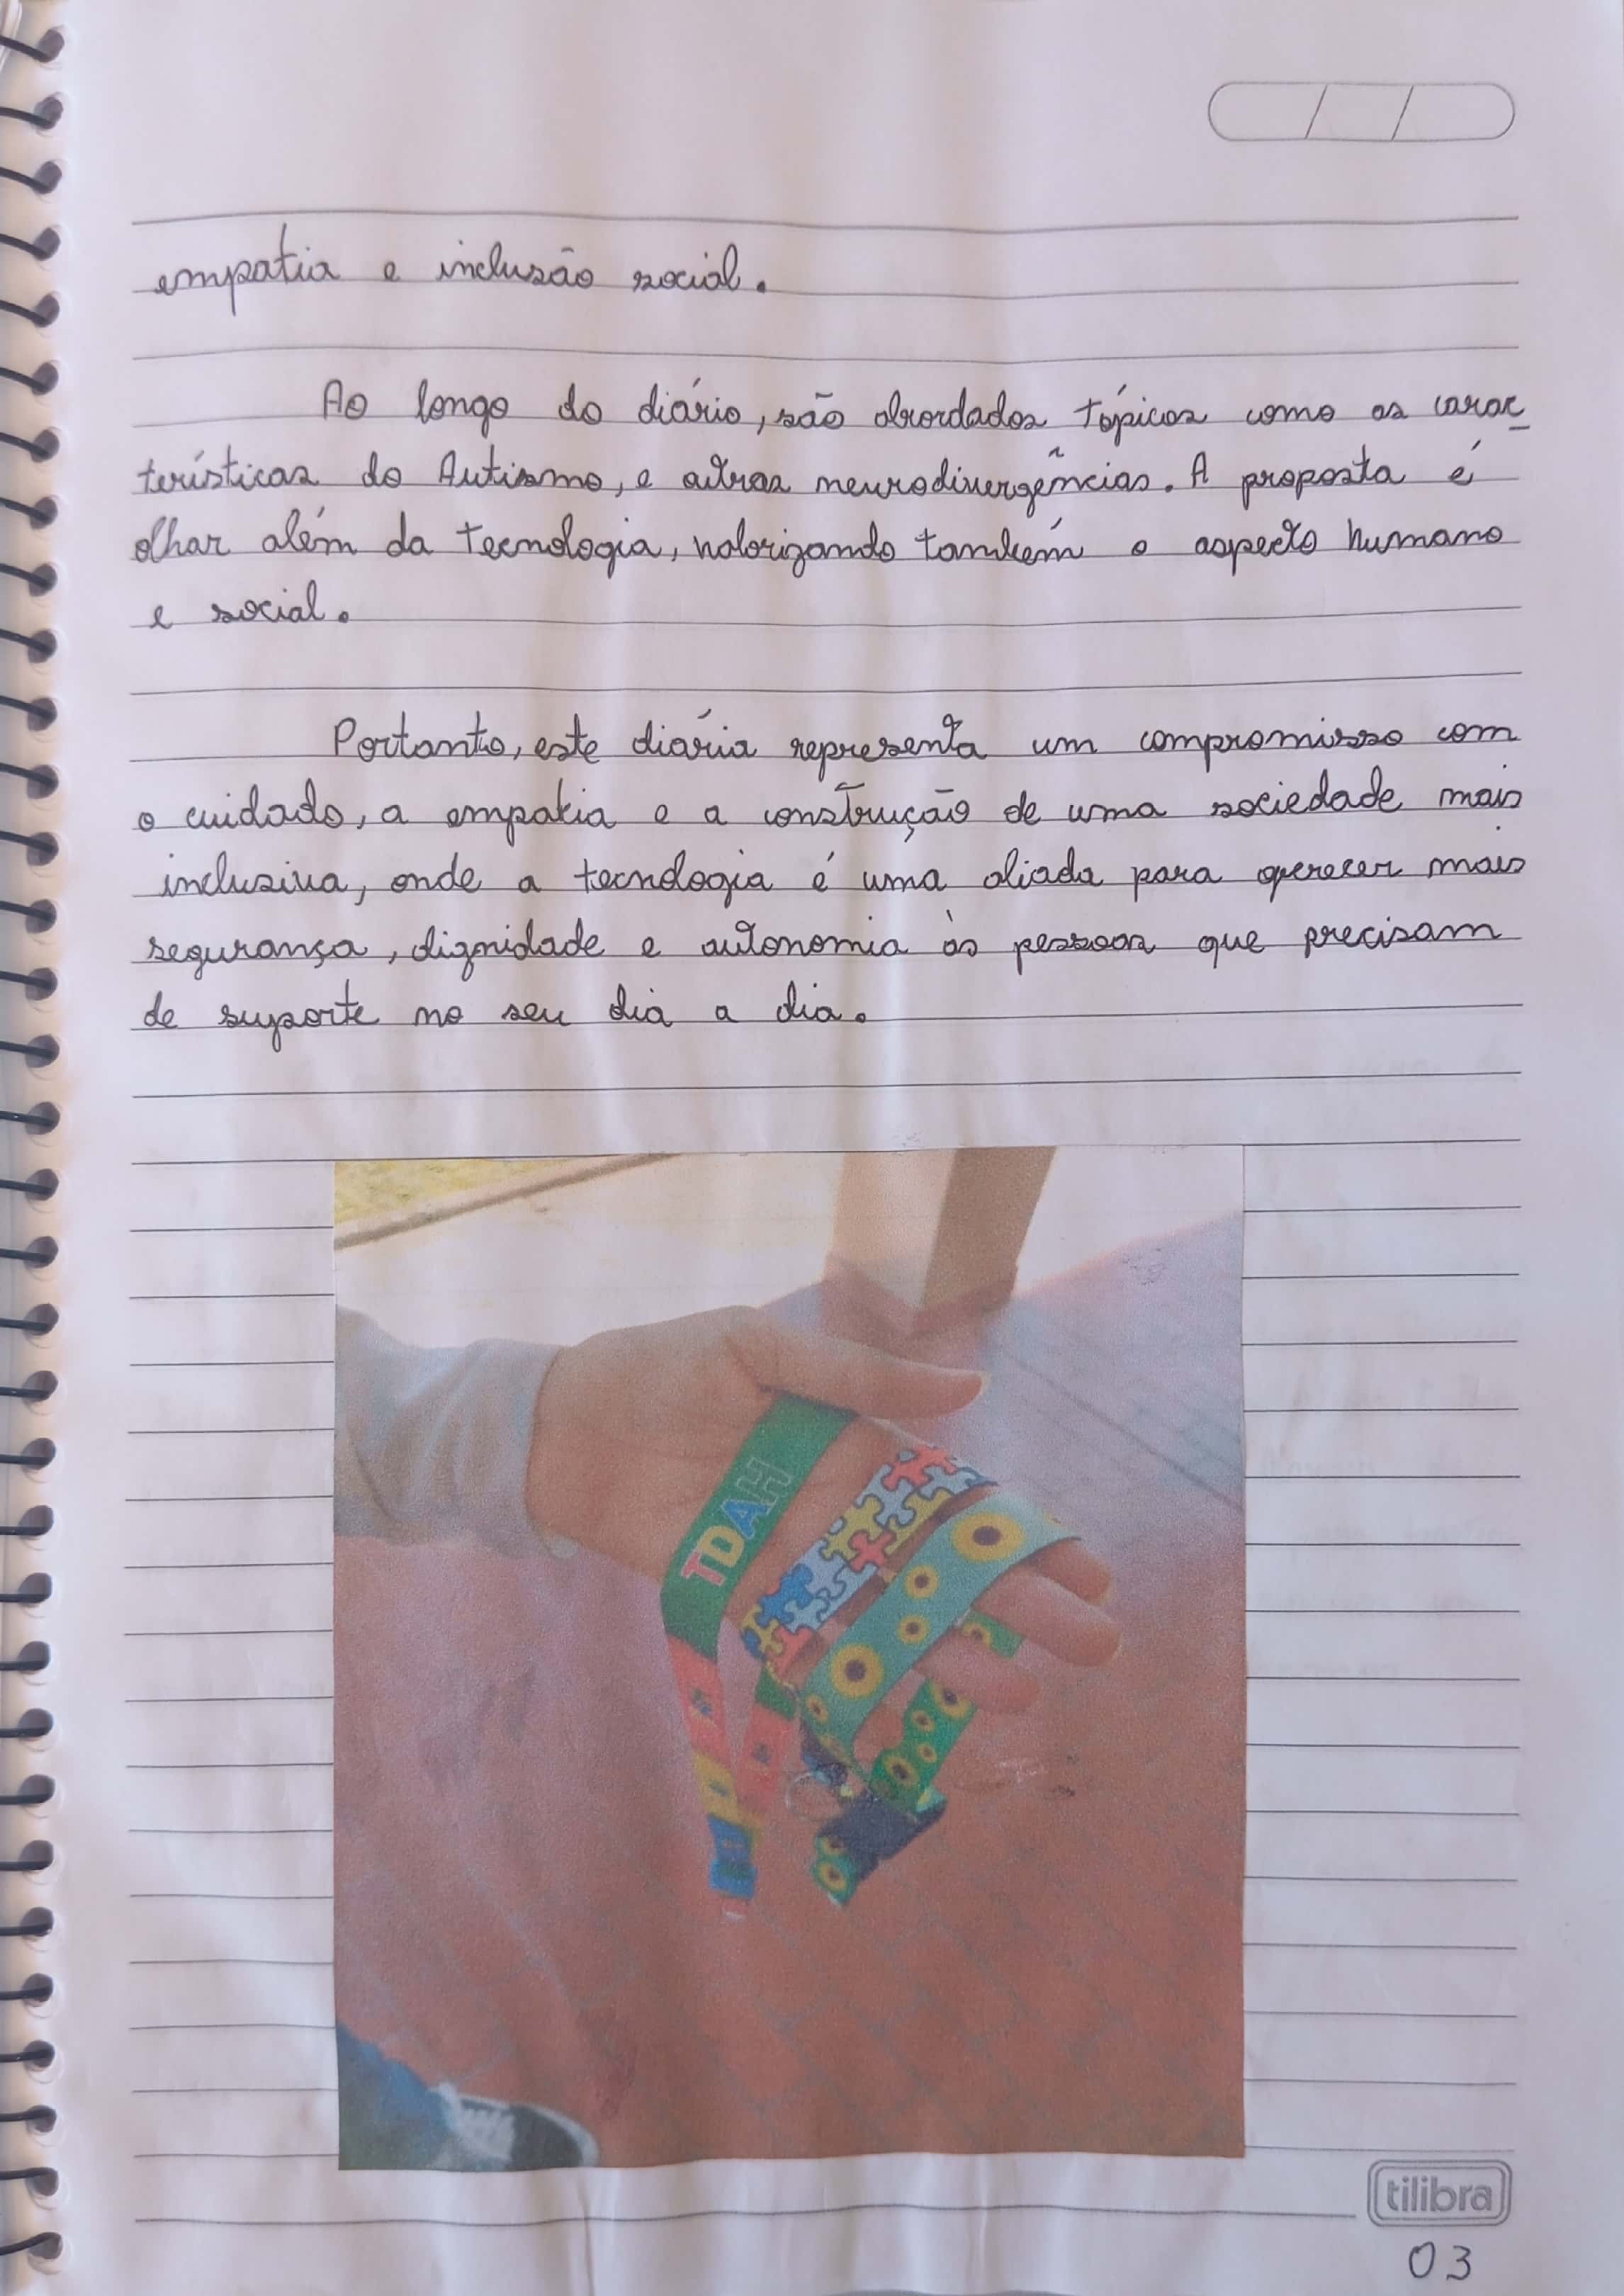 empatia e inclusão social.
Ao longo do diário, são abordados tópicos como as carac-
terísticas do Autismo, e outras neurodivergências. A proposta é
olhar além da tecnologia, valorizando também o aspecto humano
e social.
Portanto, este diária representa um compromisso com
o cuidado, a empatia e a construção de uma sociedade mais
inclusiva, onde a tecnologia é uma aliada para oferecer mais
segurança, dignidade e autonomia às pessoas que precisam
de suporte no seu dia a dia.
TDAH
tilibra
03